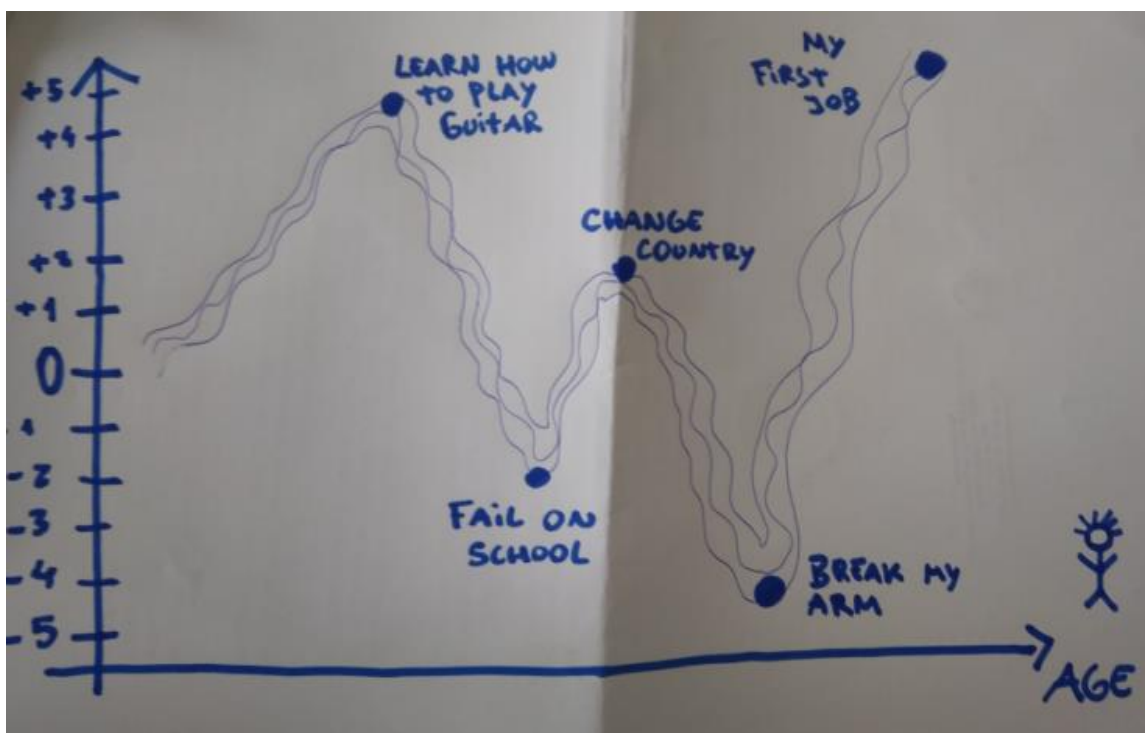 +5
+4
+3
+2
+1
0
1
-2
-3
-4
-5
LEARN HOW
TO PLAY
GUITAR
FAIL ON
SCHOOL
CHANGE
COUNTRY
BREAK MY
ARM
MY
FIRST
JOB
AGE